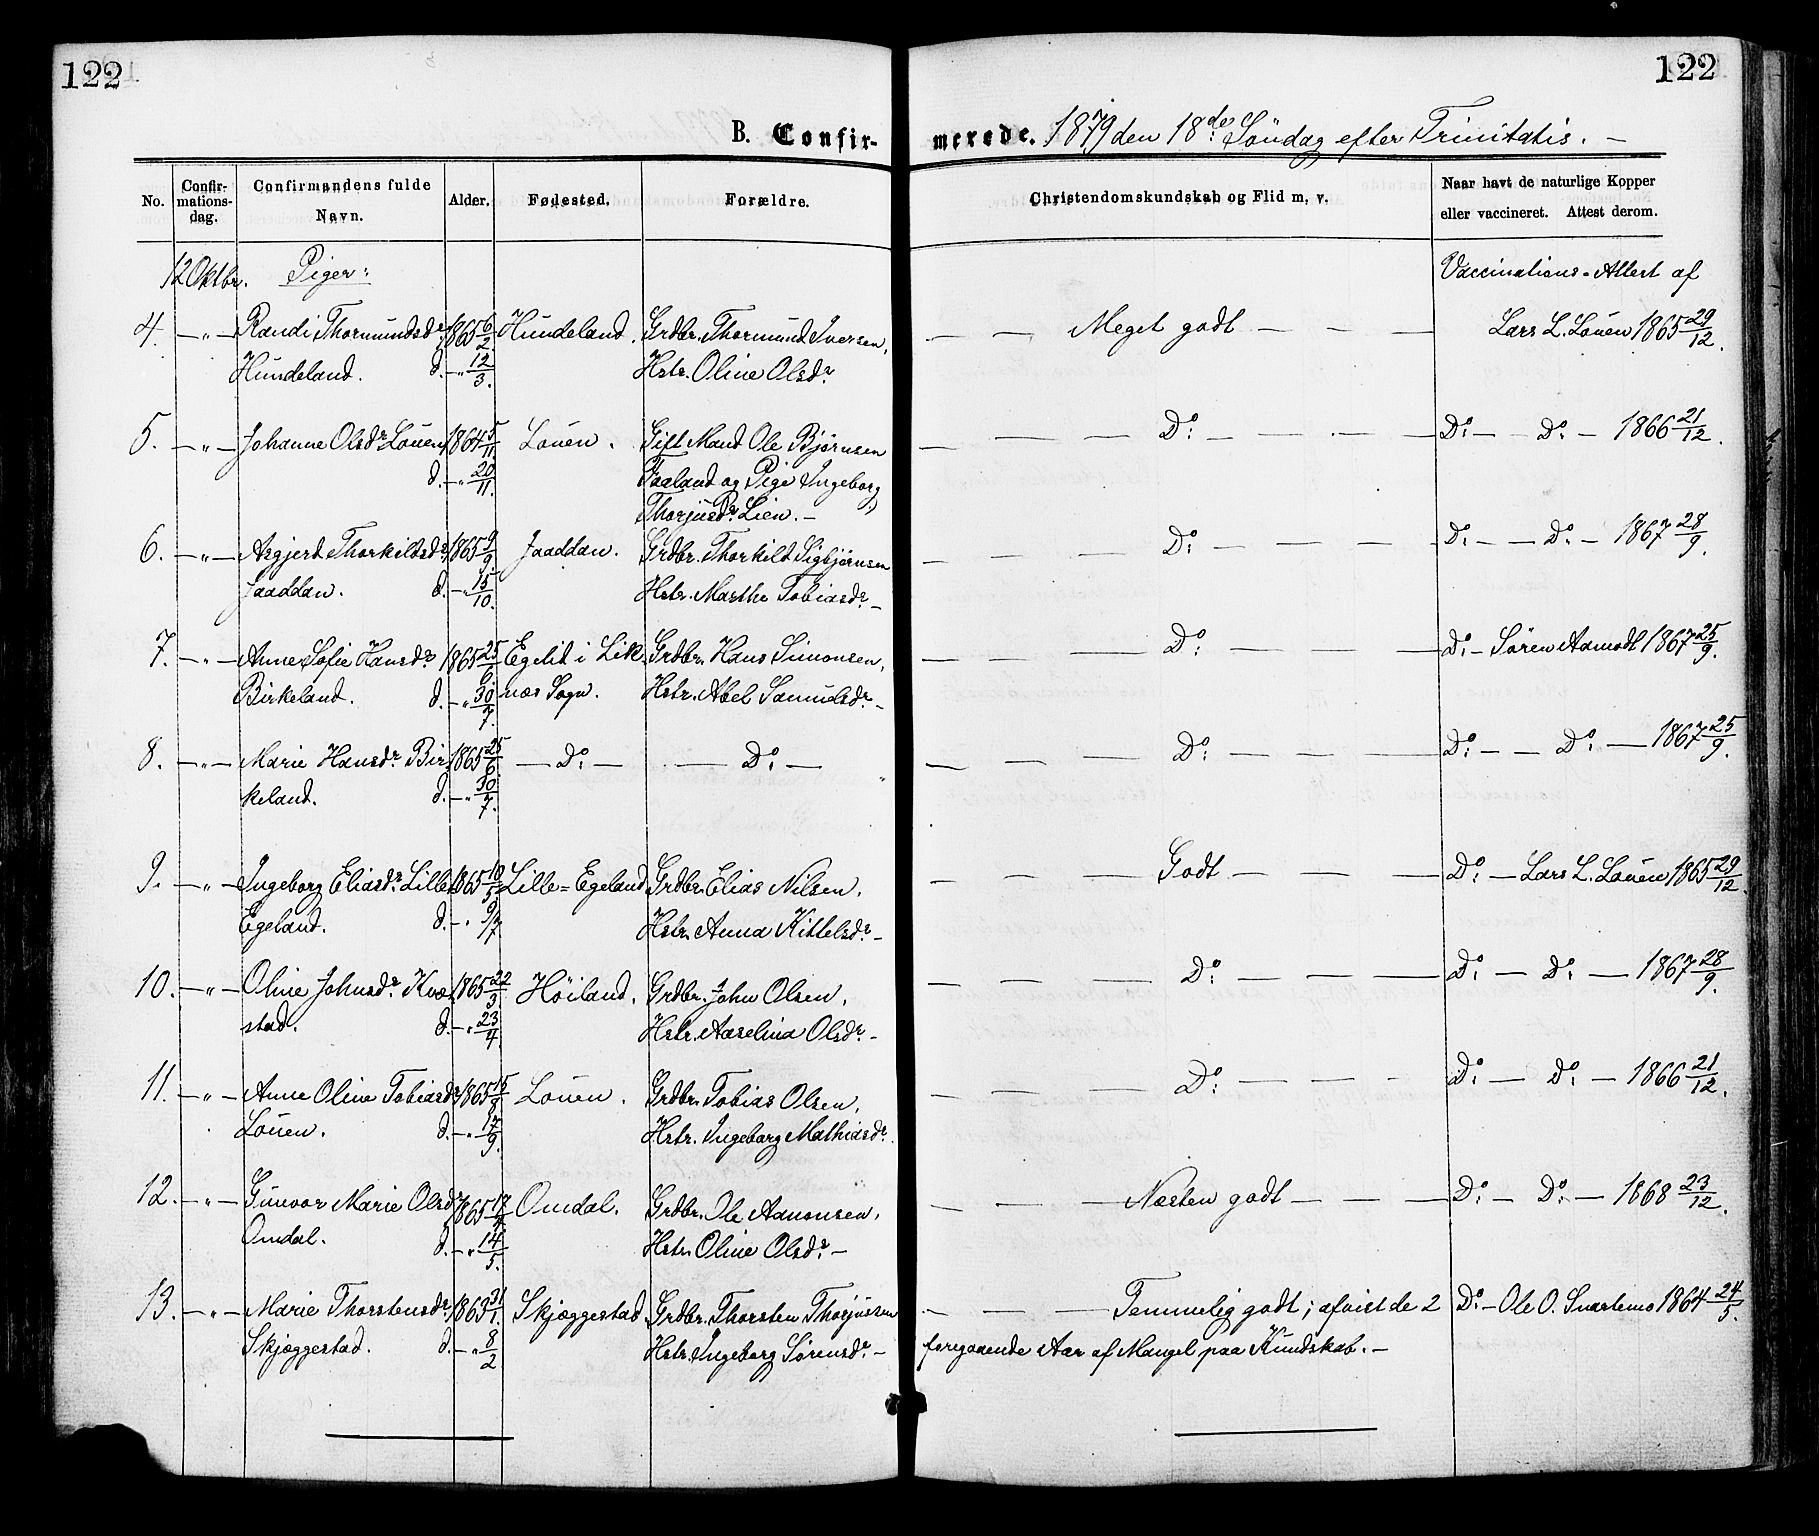 122
122
B. Confir-
merede. 1879 den 18de Søndag efter Trinitatis. —
No.
Confir-
mations-
dag.
Confirmandens fulde
Navn.
Alder.
Fødested.
Forældre.
Christendomskundskab og Flid m. v.
Naar havt de naturlige Kopper
eller vaccineret. Attest derom.
12 Oktbr. Piger:
Vaccinations-Attest af
4. — „ — Randi Thormundsdr. 1865 6/2 Hundeland. Grdbr. Thormund Iversen, — — Meget godt — — — Lars L. Løuen 1865 29/12.
Hundeland. d. — „ 12/3. Hstr. Oline Olsdr.
5. — „ — Johanne Olsdr. Løuen 1864 5/11 Løuen. Gift Mand Ole Bjørnsen — — — Do: — — — Do: — Do: — 1866 21/12.
d. — „ 20/11. Faaland og Pige Ingeborg
Thorjusdr. Lien. —
6. — „ — Asgjerd Thorkildsdr. 1865 9/9 Jaaddan. Grdbr. Thorkild Sigbjørnsen — — — Do: — — — Do: — — Do: — 1867 28/9.
Jaaddan. d. — „ 15/10. Hstr. Marthe Tobiasdr. —
7. — „ — Anne Sofie Hansdr. 1865 25/6 Egelid i Lik Grdbr. Hans Simonsen, — — — Do: — — — Do: — Søren Aamodt 1867 25/9.
Birkeland. d. — „ 30/7. næs Sogn. Hstr. Abel Samuelsdr. —
8. — „ — Marie Hansdr. Bir 1865 25/6. — Do: — — Do: — — — — Do: — — — Do: — — Do: — 1867 25/9.
keland. d. — „ 30/7.
9. — „ — Ingeborg Eliasdr. Lille 1865 Lille=Egeland Grdbr. Elias Nilsen, — — — Godt — — — Do: — Lars L. Løuen 1865 29/12.
Egeland. d. — „ 9/7 Hstr. Anna Kittelsdr. —
10. — „ — Oline Johnsdr. Kvæ 1865 22/3 Høiland. Grdbr. John Olsen, — — — Do: — — — Do: — Do: — 1867 28/9.
stad. d. — „ 23/4. Hstr. Aaselina Olsdr. —
11. — „ — Anne Oline Tobiasdr. 1865 15/8 Løuen. Grdbr. Tobias Olsen, — — — Do: — — — Do: — Do: — 1866 21/12.
Løuen. d. — „ 17/9. Hstr. Ingeborg Mathiasdr.
12. — „ — Gunvor Marie Olsdr. 1865 17/4. Omdal. Grdbr. Ole Aanonsen, — — — Næsten godt — — — Do: — Do: — 1868 23/12.
Omdal. d. — „ 14/5. Hstr. Oline Olsdr. —
13. — „ — Marie Thorstensdr. 1863 31/1. Skjæggestad Grdbr. Thorsten Thorjussen — — — Temmelig godt; afvist de 2 Do: — Ole O. Snartemo 1864 24/5.
Skjæggestad. d. — „ 8/2 Hstr. Ingeborg Sørensdr. — foregaaende Aar af Mangel paa Kundskab. —